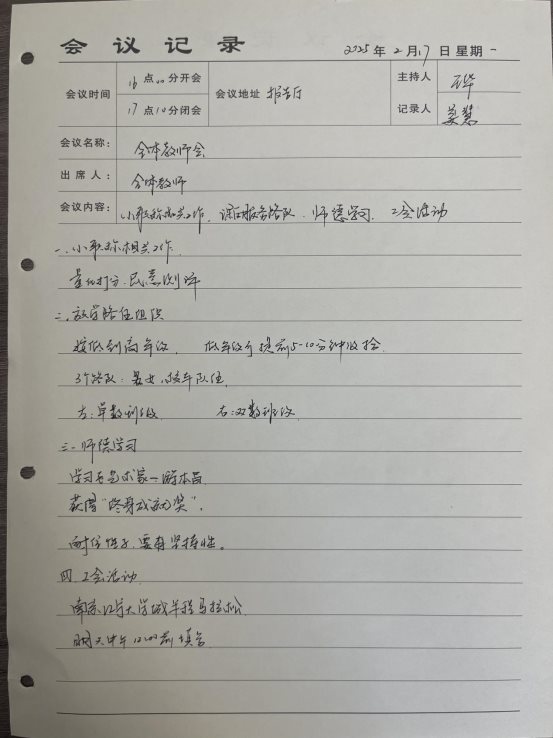 会议记录 2025年2月17日星期一
会议时间 16点00分开会 会议地址 报告厅 主持人
17点10分闭会 记录人 姜慧
会议名称: 全体教师会
出席人: 全体教师
会议内容: 小职称相关工作、课后服务路队、师德学习、工会活动
一、小职称相关工作
量化打分、民意测评
二、放学路队组织
按低到高年级, 低年级可提前5-10分钟收拾
3个路队:男、女、校车队伍
左:单数班级 右:双数班级
三、师德学习
学习老艺术家—游本昌
获得“终身成就奖”。
耐住性子,要有坚持性。
四、工会活动
南京江宁大学城半程马拉松
明天中午12:00前填写